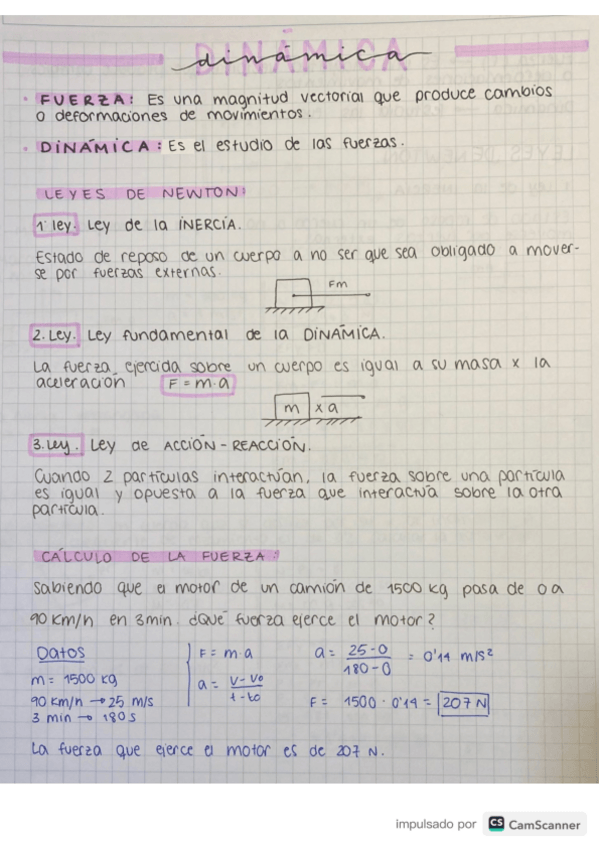 DINÁMICA
dinámica
· FUERZA: Es una magnitud vectorial que produce cambios
o deformaciones de movimientos.
· DINÁMICA: Es el estudio de las fuerzas.
LEYES DE NEWTON:
1ª ley. Ley de la INERCIA.
Estado de reposo de un cuerpo a no ser que sea obligado a mover-
se por fuerzas externas.
Fm
2. Ley. Ley fundamental de la DINÁMICA.
La fuerza ejercida sobre un cuerpo es igual a su masa x la
aceleración F = m·a
m x a
3. Ley. Ley de ACCIÓN-REACCIÓN.
Cuando 2 partículas interactúan, la fuerza sobre una partícula
es igual y opuesta a la fuerza que interactúa sobre la otra
partícula.
CÁLCULO DE LA FUERZA:
Sabiendo que el motor de un camión de 1500 kg pasa de 0 a
90 km/h en 3 min. ¿Qué fuerza ejerce el motor?
Datos
m = 1500 kg
90 km/h → 25 m/s
3 min → 180 s
F = m·a
a = v-v0 / t-t0
a = 25-0 / 180-0 = 0'14 m/s²
F = 1500 · 0'14 = 207 N
La fuerza que ejerce el motor es de 207 N.
impulsado por CS CamScanner